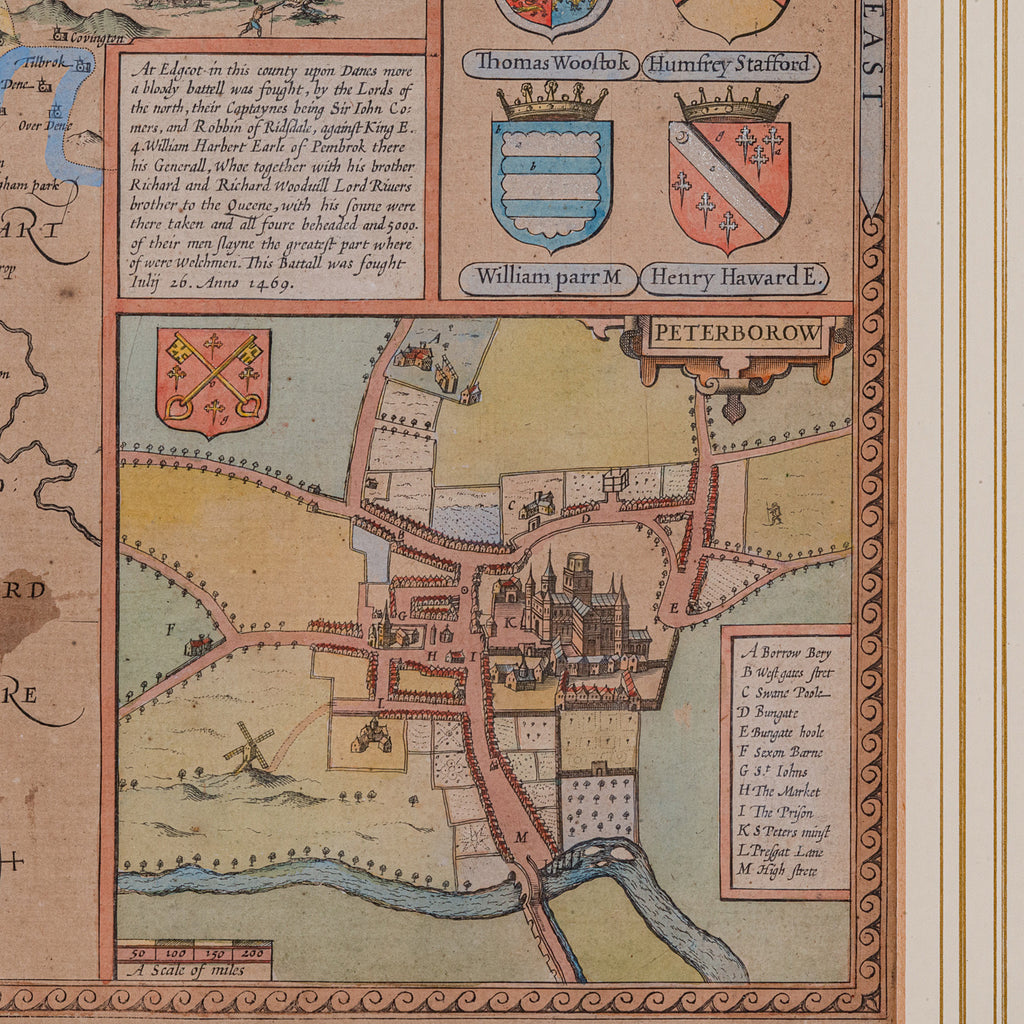 Covington
Tilbrok
Dene
Over Dene
gham park
ART
rop
on
RD
RE
H
EAST
Thomas Woostok
Humfrey Stafford
William parr M
Henry Haward E.
At Edgcot in this county upon Danes more
a bloody battell was fought, by the Lords of
the north, their Captaynes being Sir Iohn Co-
mers, and Robbin of Ridsdale, against King E.
4. William Harbert Earle of Pembrok there
his Generall, Whoe together with his brother
Richard and Richard Wooduill Lord Riuers
brother to the Queene, with his sonne were
there taken and all foure beheaded and 5000.
of their men slayne the greatest part where
of were Welchmen. This Battall was fought
Iulij 26. Anno 1469.
PETERBOROW
A
B
C
D
E
F
G
H
I
K
L
M
A Borrow Bery
B Westgates stret
C Swane Poole
D Bungate
E Bungate hoole
F Sexon Barne
G St Iohns
H The Market
I The Prison
K S Peters minst
L Presgat Lane
M High strete
50 100 150 200
A Scale of miles